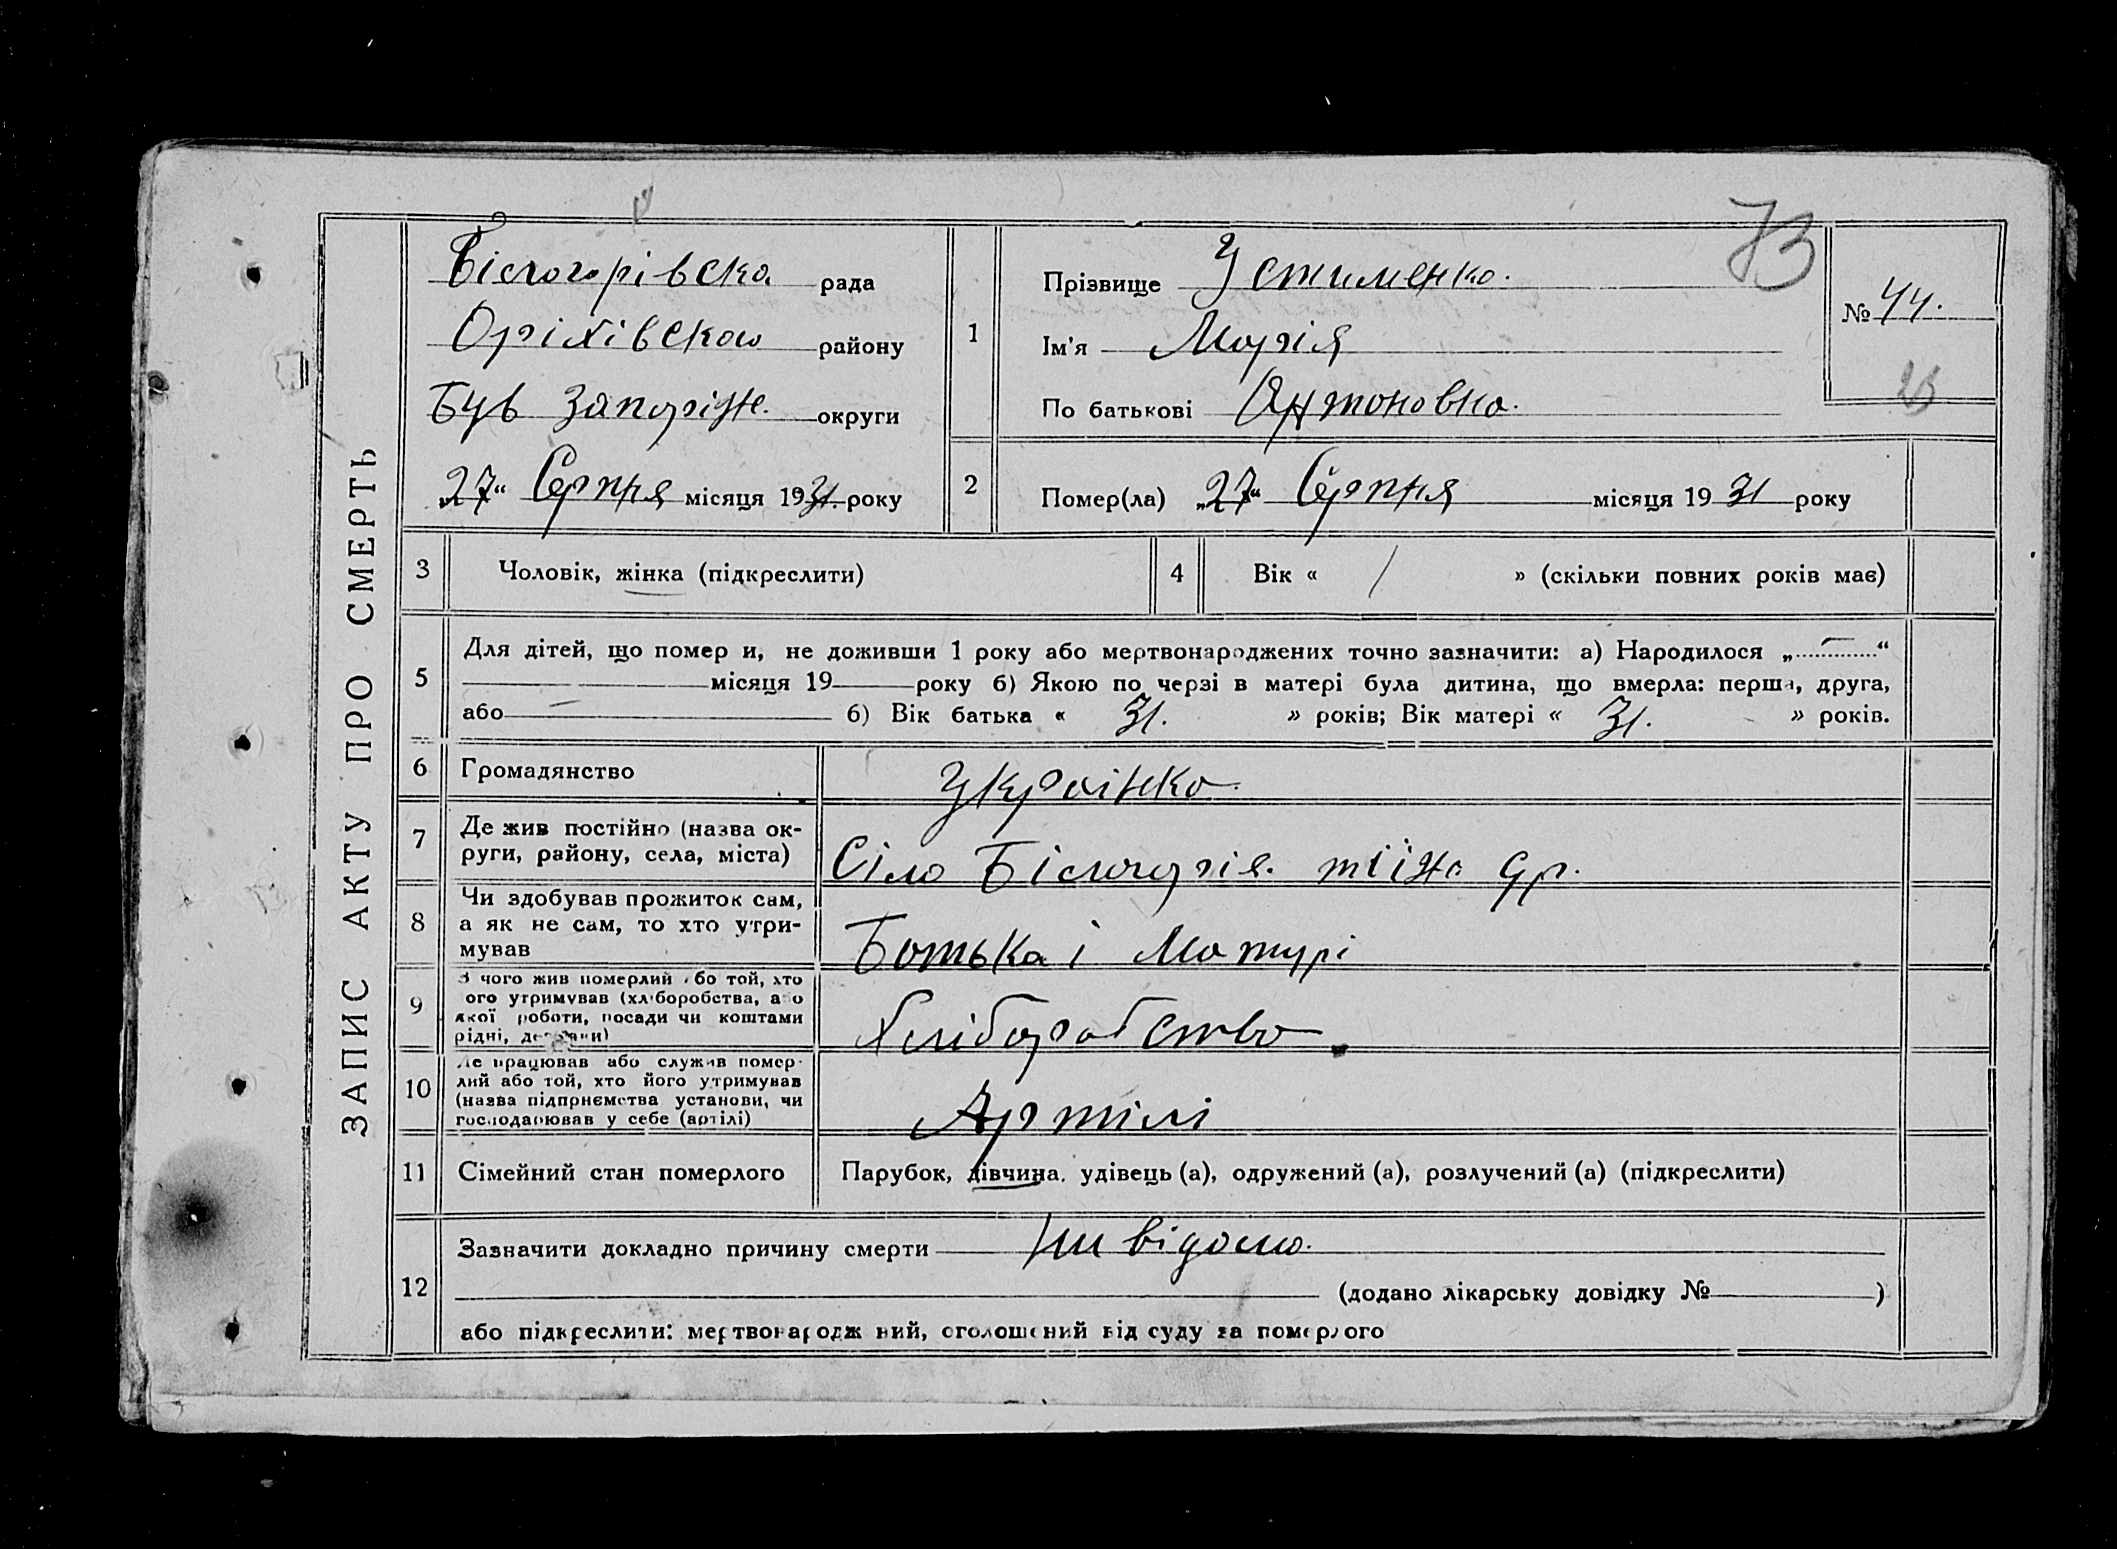 ЗАПИС АКТУ ПРО СМЕРТЬ
Білогорівска рада
Оріхівскою району
Був Запоріж. округи
„27“ Серпня місяця 1931. року
1
Прізвище Устименко.
Ім'я Марія
По батькові Антоновна.
73
№ 44.
2
Помер(ла) „27“ Серпня місяця 1931 року
3 Чоловік, жінка (підкреслити)
4 Вік « 1 » (скільки повних років має)
5 Для дітей, що помер и, не доживши 1 року або мертвонароджених точно зазначити: а) Народилося „ — “
місяця 19 року б) Якою по черзі в матері була дитина, що вмерла: перша, друга,
або — б) Вік батька « 31. » років; Вік матері « 31. » років.
6 Громадянство Українка
7 Де жив постійно (назва ок-
руги, району, села, міста) Сіло Білогорія.
8 Чи здобував прожиток сам,
а як не сам, то хто утри-
мував Батька і Матурі
9 З чого жив померлий або той, хто
ого утримував (хліборобства, або
якої роботи, посади чи коштами
рідні, держави) Хліборобство
10 Де працював або служив помер-
лий або той, хто його утримував
(назва підприємства установи, чи
господарював у себе (артілі) Артілі
11 Сімейний стан померлого Парубок, дівчина, удівець (а), одружений (а), розлучений (а) (підкреслити)
12 Зазначити докладно причину смерти Ни відомо.
(додано лікарську довідку № )
або підкреслити: мертвонароджений, оголошений від суду за померлого